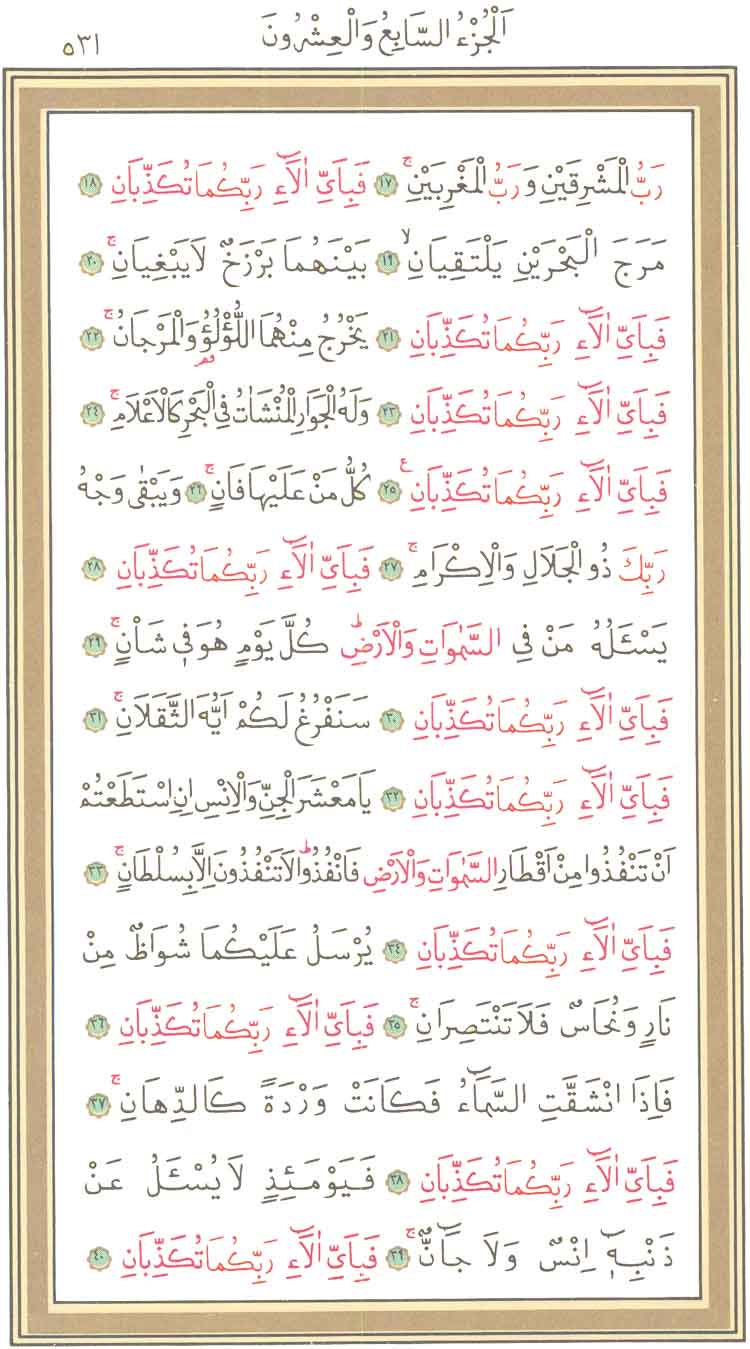 اَلْجُزْءُ السَّابِعُ وَالْعِشْرُونَ ٥٣١
رَبُّ الْمَشْرِقَيْنِ وَرَبُّ الْمَغْرِبَيْنِۚ ﴿١٧﴾ فَبِاَيِّ اٰلَٓاءِ رَبِّكُمَا تُكَذِّبَانِ ﴿١٨﴾
مَرَجَ الْبَحْرَيْنِ يَلْتَقِيَانِۙ ﴿١٩﴾ بَيْنَهُمَا بَرْزَخٌ لَا يَبْغِيَانِۚ ﴿٢٠﴾
فَبِاَيِّ اٰلَٓاءِ رَبِّكُمَا تُكَذِّبَانِ ﴿٢١﴾ يَخْرُجُ مِنْهُمَا اللُّؤْلُؤُ۬ وَالْمَرْجَانُۚ ﴿٢٢﴾
فَبِاَيِّ اٰلَٓاءِ رَبِّكُمَا تُكَذِّبَانِ ﴿٢٣﴾ وَلَهُ الْجَوَارِ الْمُنْشَاٰتُ فِي الْبَحْرِ كَالْاَعْلَامِۚ ﴿٢٤﴾
فَبِاَيِّ اٰلَٓاءِ رَبِّكُمَا تُكَذِّبَانِ ع ﴿٢٥﴾ كُلُّ مَنْ عَلَيْهَا فَانٍۚ ﴿٢٦﴾ وَيَبْقٰى وَجْهُ
رَبِّكَ ذُو الْجَلَالِ وَالْاِكْرَامِۚ ﴿٢٧﴾ فَبِاَيِّ اٰلَٓاءِ رَبِّكُمَا تُكَذِّبَانِ ﴿٢٨﴾
يَسْـَٔلُهُ مَنْ فِي السَّمٰوَاتِ وَالْاَرْضِۜ كُلَّ يَوْمٍ هُوَ فِي شَاْنٍۚ ﴿٢٩﴾
فَبِاَيِّ اٰلَٓاءِ رَبِّكُمَا تُكَذِّبَانِ ﴿٣٠﴾ سَنَفْرُغُ لَكُمْ اَيُّهَ الثَّقَلَانِۚ ﴿٣١﴾
فَبِاَيِّ اٰلَٓاءِ رَبِّكُمَا تُكَذِّبَانِ ﴿٣٢﴾ يَا مَعْشَرَ الْجِنِّ وَالْاِنْسِ اِنِ اسْتَطَعْتُمْ
اَنْ تَنْفُذُوا مِنْ اَقْطَارِ السَّمٰوَاتِ وَالْاَرْضِ فَانْفُذُواۜ لَا تَنْفُذُونَ اِلَّا بِسُلْطَانٍۚ ﴿٣٣﴾
فَبِاَيِّ اٰلَٓاءِ رَبِّكُمَا تُكَذِّبَانِ ﴿٣٤﴾ يُرْسَلُ عَلَيْكُمَا شُوَاظٌ مِنْ
نَارٍ وَنُحَاسٌ فَلَا تَنْتَصِرَانِۚ ﴿٣٥﴾ فَبِاَيِّ اٰلَٓاءِ رَبِّكُمَا تُكَذِّبَانِ ﴿٣٦﴾
فَاِذَا انْشَقَّتِ السَّمَٓاءُ فَكَانَتْ وَرْدَةً كَالدِّهَانِۚ ﴿٣٧﴾
فَبِاَيِّ اٰلَٓاءِ رَبِّكُمَا تُكَذِّبَانِ ﴿٣٨﴾ فَيَوْمَئِذٍ لَا يُسْـَٔلُ عَنْ
ذَنْبِهٖٓ اِنْسٌ وَلَا جَٓانٌّۚ ﴿٣٩﴾ فَبِاَيِّ اٰلَٓاءِ رَبِّكُمَا تُكَذِّبَانِ ﴿٤٠﴾